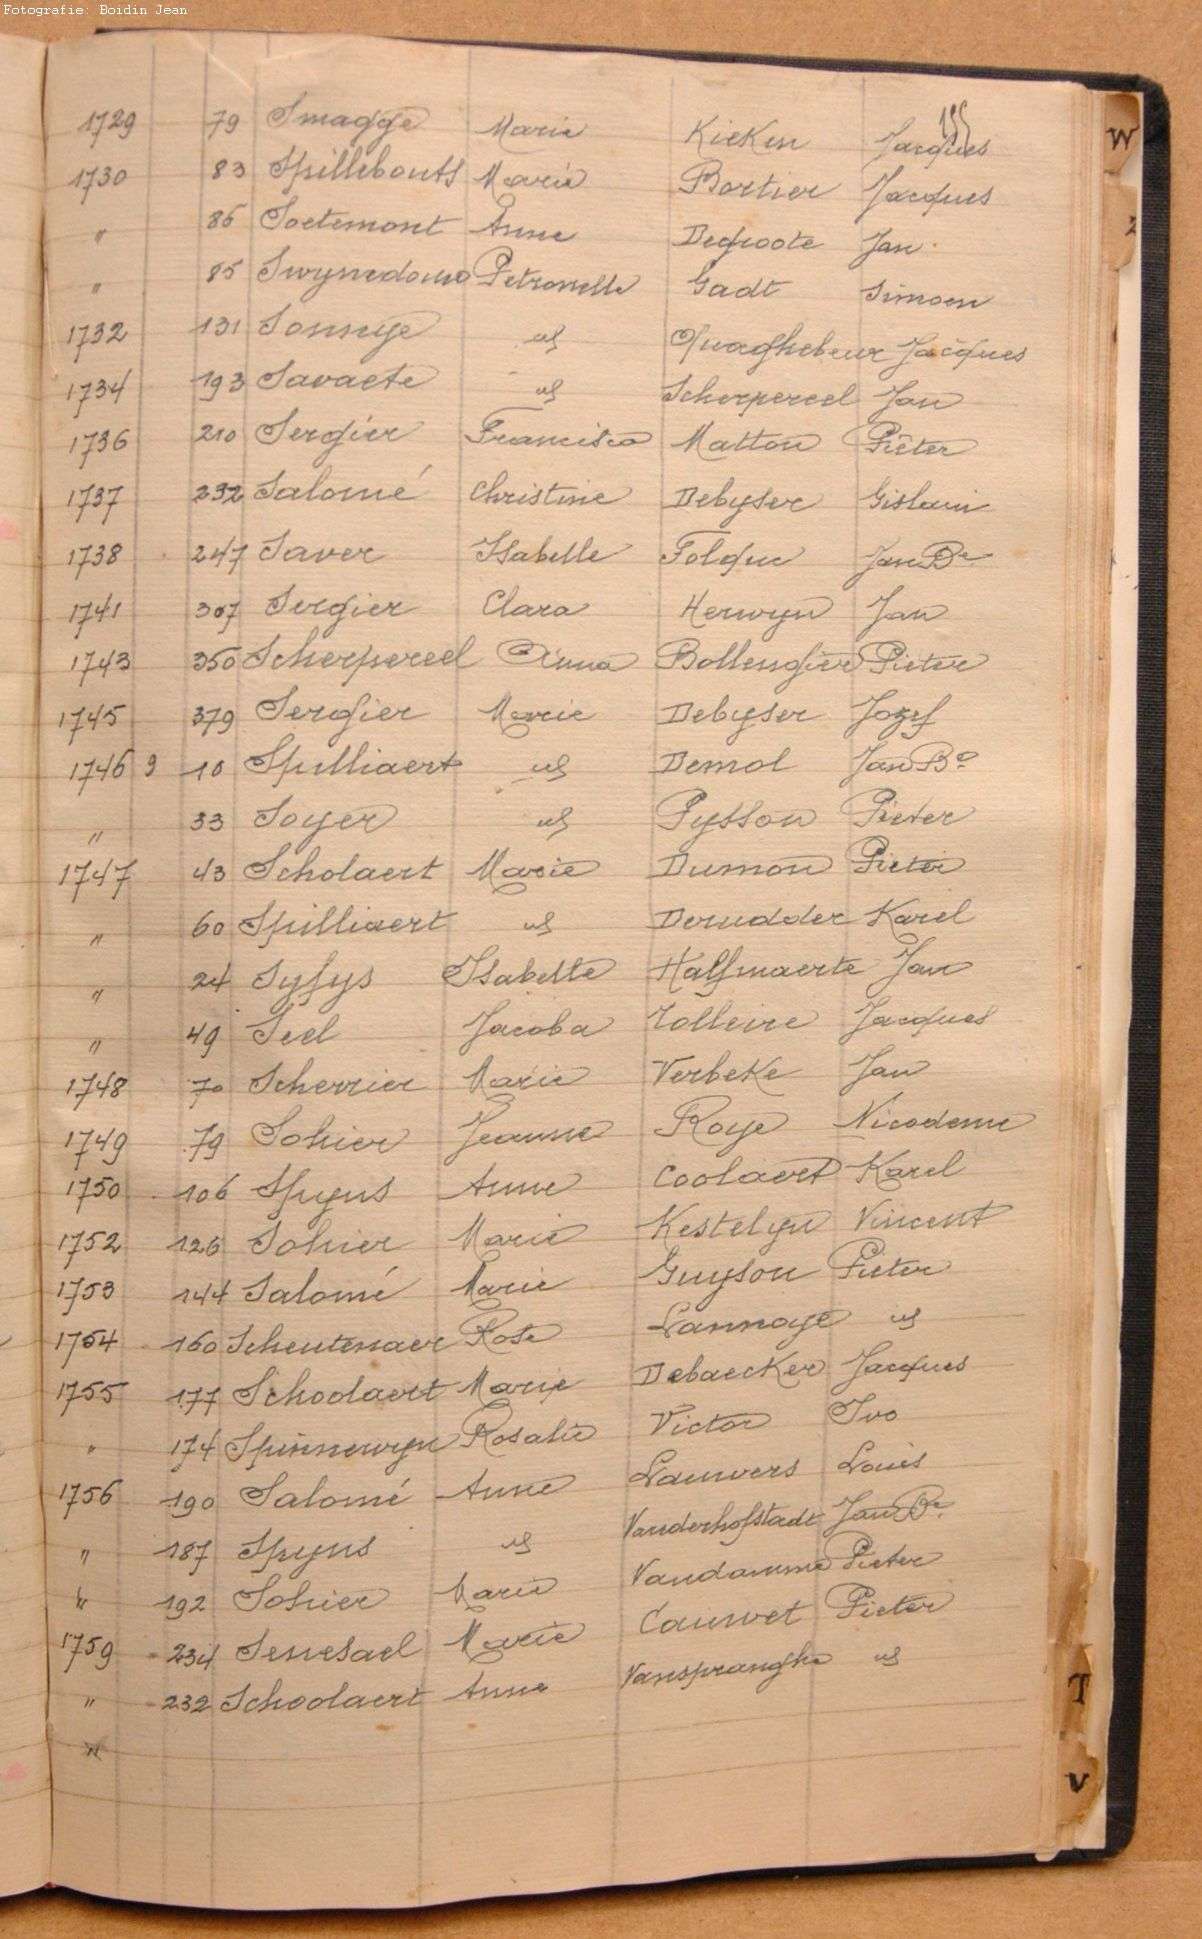 Fotografie: Boidin Jean
155
1729 79 Smagge Marie Kieken Jacques
1730 83 Spillebouts Marie Bortier Jacques
" 86 Soetemont Anne Degroote Jan
" 85 Swynedouw Petronelle Gadt Simoen
1732 131 Sonnye id Quaghebeur Jacques
1734 193 Savaete id Scherpereel Jan
1736 210 Sergier Francisca Matton Piêter
1737 232 Salomé Christine Debyser Gislain
1738 247 Saver Isabelle Folque Jan Bte
1741 307 Sergier Clara Herwyn Jan
1743 350 Scherpereel Anna Bollengier Pieter
1745 379 Sergier Marie Debyser Jozef
1746 9 10 Spilliaert id Demol Jan Bte
" 33 Soyer id Pysson Pieter
1747 43 Scholaert Marie Dumon Pieter
" 60 Spilliaert id Derudder Karel
" 24 Syfys Isabelle Halfmaerte Jan
" 49 Seel Jacoba Tolleire Jacques
1748 70 Scherrier Marie Verbeke Jan
1749 79 Sohier Jeanne Roye Nicodeme
1750 106 Spyns Anne Coolaert Karel
1752 126 Sohier Marie Kestelyn Vincent
1753 144 Salomé Marie Guyson Pieter
1754 160 Scheutenaer Rose Lannoye id
1755 177 Schoolaert Marie Debaecker Jacques
" 174 Spinnewyn Rosalie Victor Ivo
1756 190 Salomé Anne Lauwers Louis
" 187 Spyns id Vanderhofstadt Jan Bte
" 192 Sohier Marie Vandamme Pieter
1759 234 Senesael Marie Cauwet Pieter
" 232 Schoolaert Anne Vanspranghe id
"
W
Z
T
V